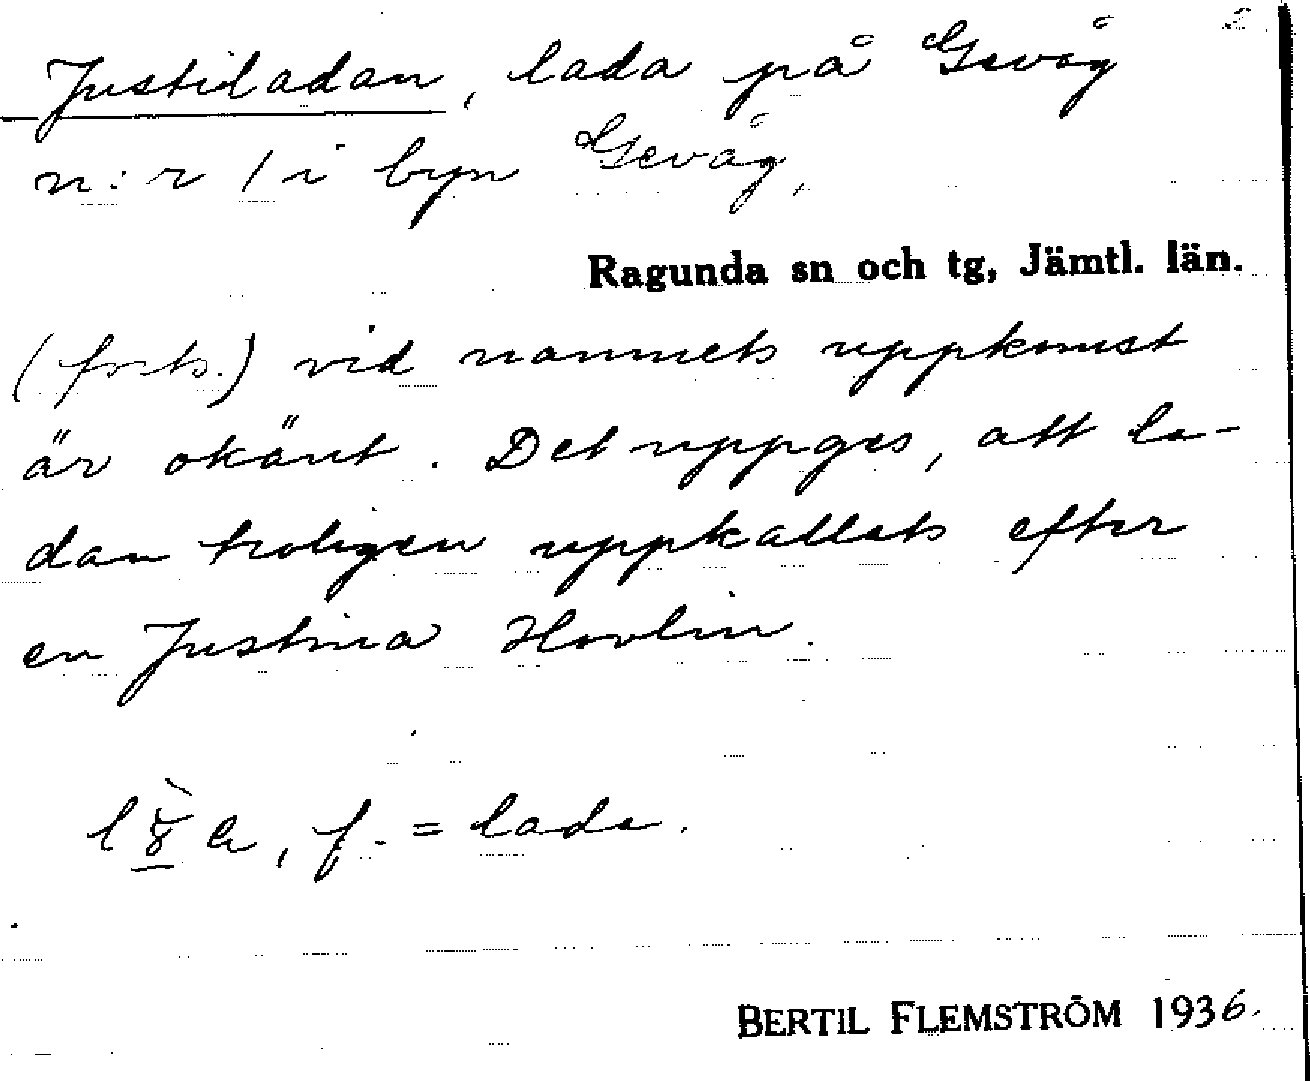 2
Justiladan, lada på Gevåg
n:r 1 i byn Gevåg,
Ragunda sn och tg, Jämtl. län.
(forts.) vid namnets uppkomst
är okänt. Det uppges, att la-
dan troligen uppkallats efter
en Justina Hovlin.
f. = lada.
BERTIL FLEMSTRÖM 1936.